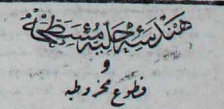 هندسهٔ حلیهٔ مسطحه
و
قطوع مخروطیه